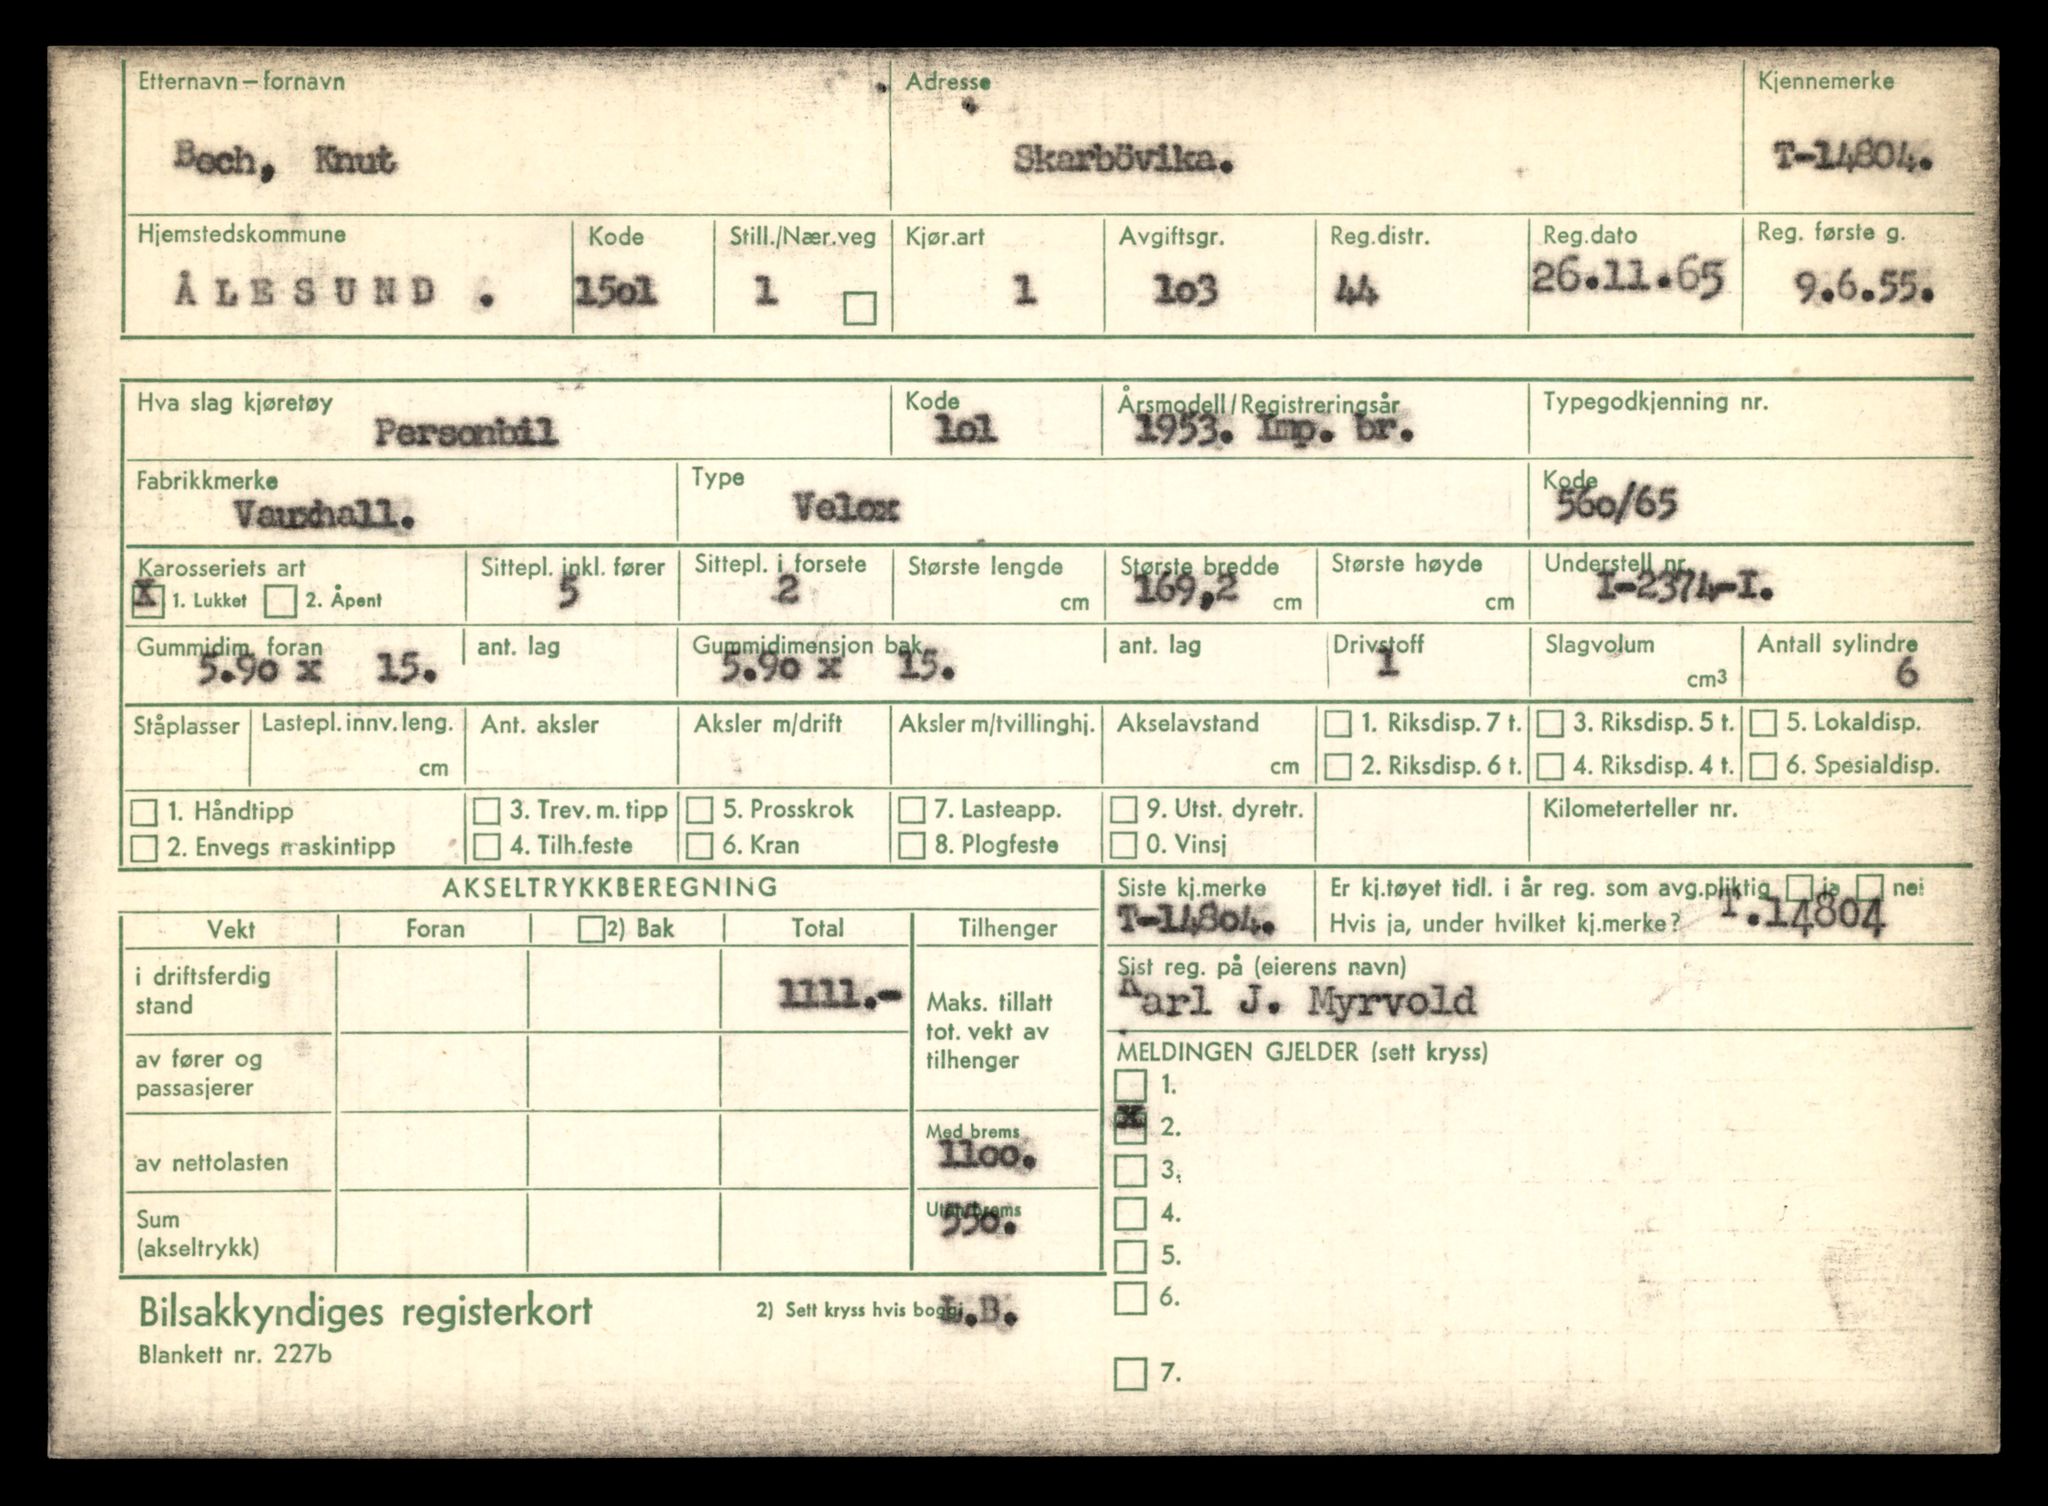 Etternavn – fornavn Adresse Kjennemerke
Bech, Knut Skarbövika. T-14804.
Hjemstedskommune Kode Still./Nær.veg Kjør.art Avgiftsgr. Reg.distr. Reg.dato Reg. første g.
ÅLESUND . 15o1 1 1 1o3 44 26.11.65 9.6.55.
Hva slag kjøretøy Kode Årsmodell/Registreringsår Typegodkjenning nr.
Personbil 1o1 1953. Imp. br.
Fabrikkmerke Type Kode
Vauxhall. Velox 56o/65
Karosseriets art Sittepl. inkl. fører Sittepl. i forsete Største lengde Største bredde Største høyde Understell nr.
X 1. Lukket 2. Åpent 5 2 cm 169,2 cm cm I-2374-I.
Gummidim. foran ant. lag Gummidimensjon bak ant. lag Drivstoff Slagvolum Antall sylindre
5.9o x 15. 5.9o x 15. 1 cm3 6
Ståplasser Lastepl. innv. leng. Ant. aksler Aksler m/drift Aksler m/tvillinghj. Akselavstand 1. Riksdisp. 7 t. 3. Riksdisp. 5 t. 5. Lokaldisp.
cm cm 2. Riksdisp. 6 t. 4. Riksdisp. 4 t. 6. Spesialdisp.
1. Håndtipp 3. Trev. m. tipp 5. Prosskrok 7. Lasteapp. 9. Utst. dyretr. Kilometerteller nr.
2. Envegs maskintipp 4. Tilh.feste 6. Kran 8. Plogfeste 0. Vinsj
AKSELTRYKKBEREGNING Siste kj.merke Er kj.tøyet tidl. i år reg. som avg.pliktig ja nei
T-148o4. Hvis ja, under hvilket kj.merke? T.14804
Vekt Foran 2) Bak Total Tilhenger
Sist reg. på (eierens navn)
Karl J. Myrvold
i driftsferdig stand 1111.-
Maks. tillatt tot. vekt av tilhenger
av fører og passasjerer
MELDINGEN GJELDER (sett kryss)
1.
x 2.
av nettolasten Med brems
11oo.
3.
Sum (akseltrykk) Uten brems
55o.
4.
5.
6.
Bilsakkyndiges registerkort 2) Sett kryss hvis boggi L.B.
Blankett nr. 227b
7.